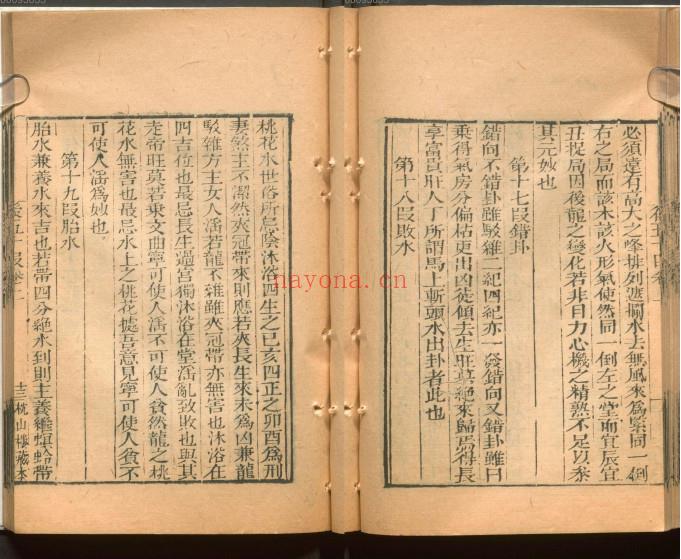 必須遠有高大之峰排列遮攔水去無風來爲緊同一倒
右之局而該木該火形氣使然同一倒左之堂而宜辰宜
丑捉局因後龍之變化若非目力心機之精熟不足以叅
其元妙也
第十七叚錯卦
錯向不錯卦雖駁雜二紀四紀亦一發錯向又錯卦雖曰
乗得氣房分偏枯更出凶徒傾去生旺莫絕來歸焉得長
享富貴旺人丁所謂馬上斬頭水出卦者此也
第十八叚敗水
桃花水世俗所忌陰沐浴四生之巳亥四正之卯酉爲刑
妻煞主不潔然夾冠帶來則應若夾長生來未爲凶兼龍
駁雜方主女人淫若龍不雜雖夾冠帶亦無害也沐浴在
四吉位也最忌長生過宮獨沐浴在堂淫亂致敗也與其
走帝旺莫若乗文曲寧可使人淫不可使人貧然龍之桃
花水無害也最忌水上之桃花據吾意見寧可使人貧不
可使人淫爲妙也
第十九叚胎水
胎水兼養水來吉也若帶四分絕水到則主養雞螟蛉帶
卷五十叚 卷二
十三
枕山樓藏本
nayona.cn